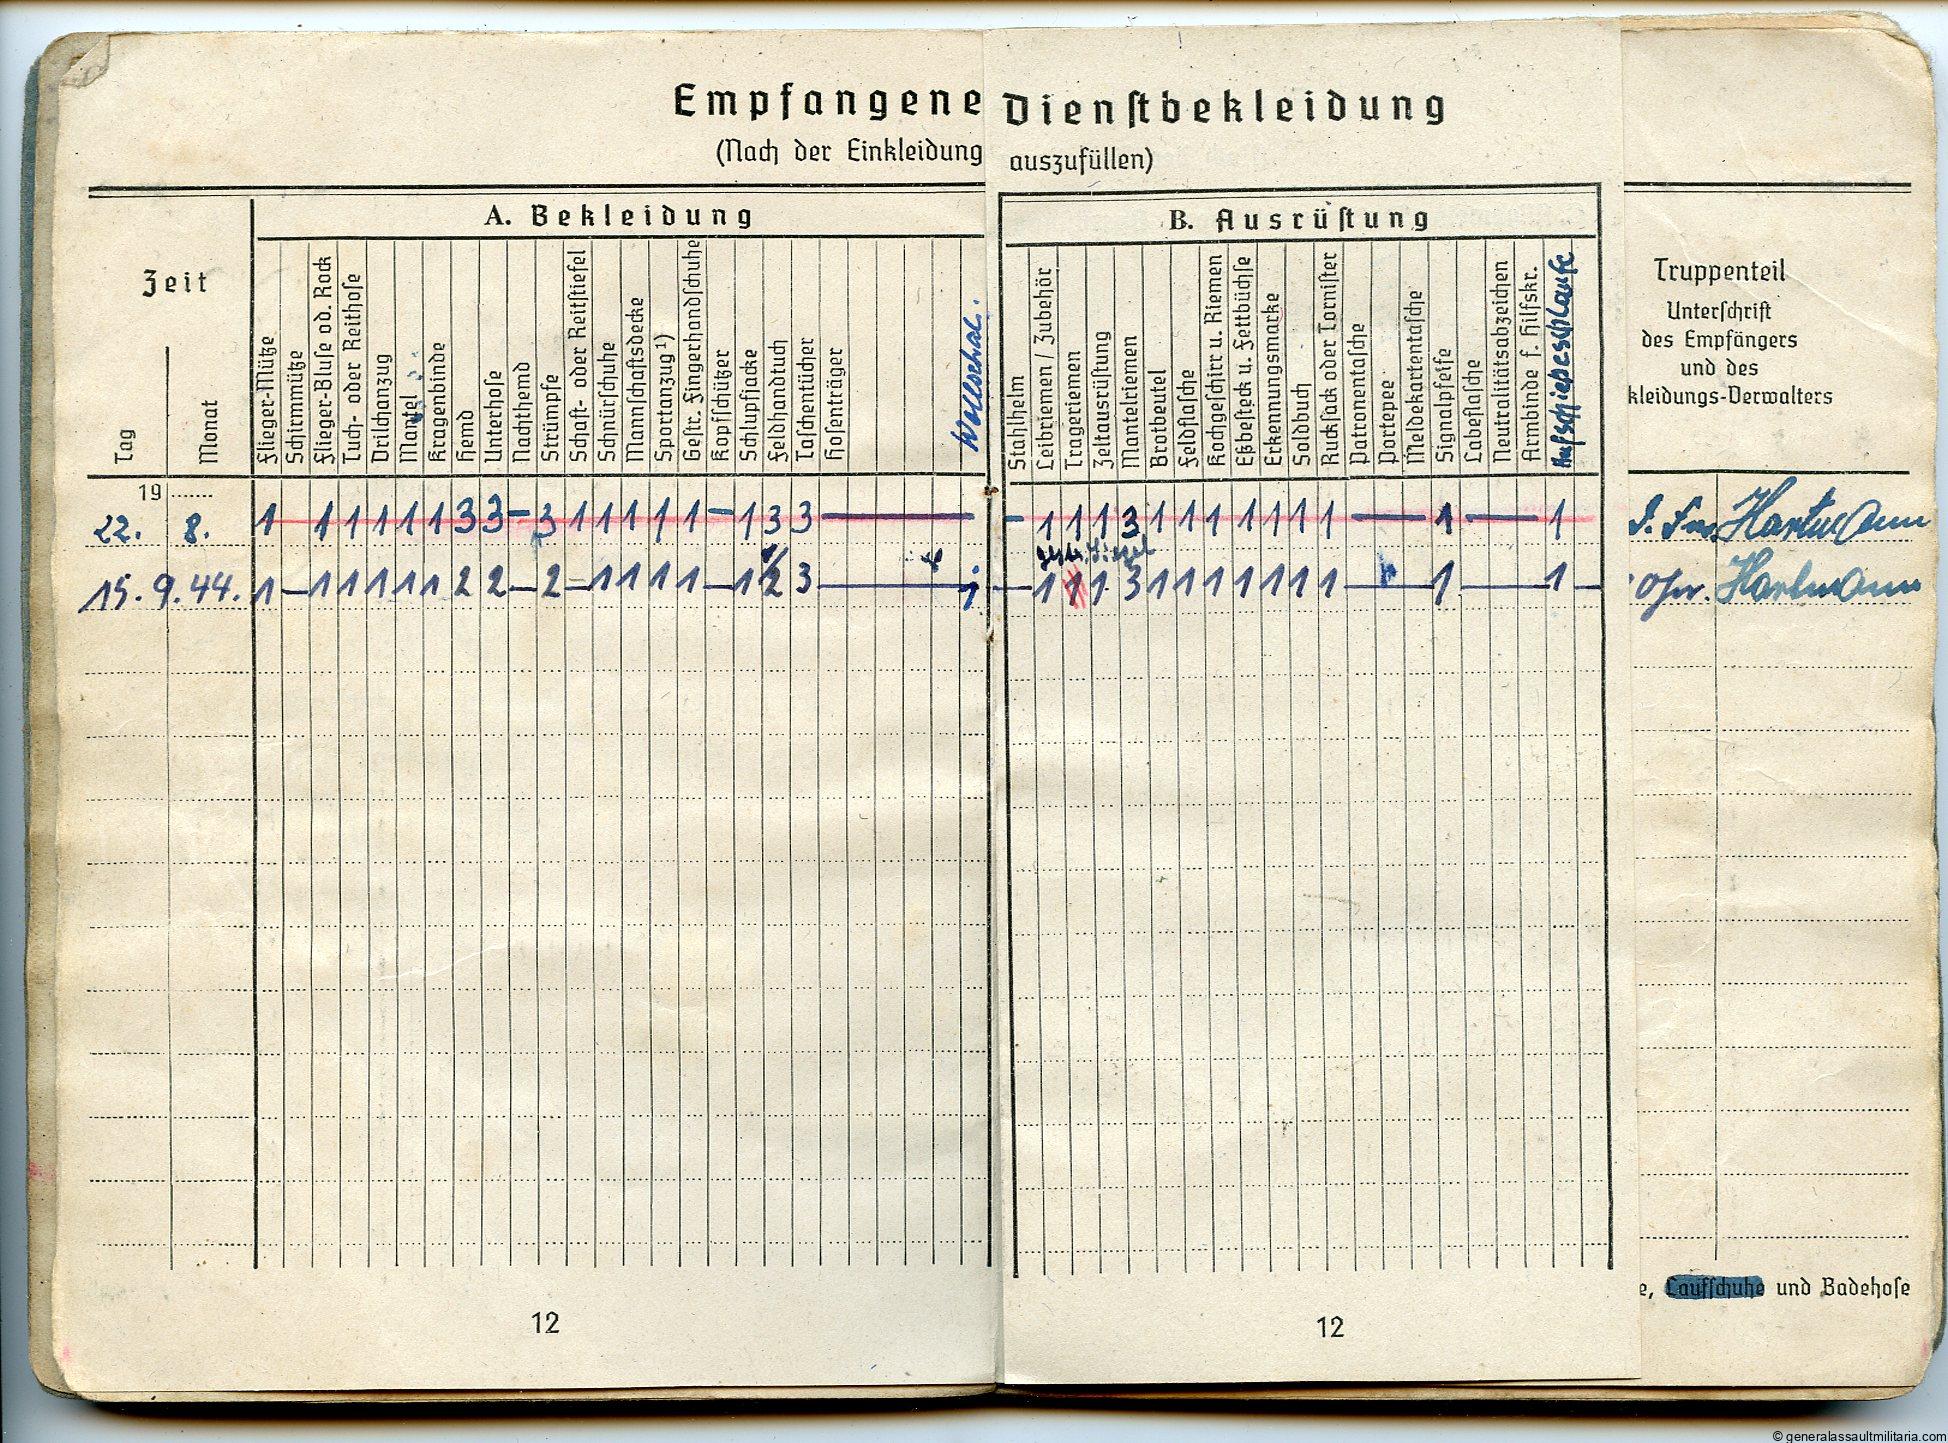 Empfangene Dienstbekleidung
(Nach der Einkleidung auszufüllen)
A. Bekleidung
B. Ausrüstung
Zeit
Tag
Monat
Flieger-Mütze
Schirmmütze
Flieger-Bluse od. Rock
Tuch- oder Reithose
Drilchanzug
Mantel
Kragenbinde
Hemd
Unterhose
Nachthemd
Strümpfe
Schaft- oder Reitstiefel
Schnürschuhe
Mannschaftsdecke
Sportanzug ¹)
Gestr. Fingerhandschuhe
Kopfschützer
Schlupfjacke
Feldhandtuch
Taschentücher
Hosenträger
Wollschal.
Stahlhelm
Leibriemen / Zubehör
Trageriemen
Zeltausrüstung
Mantelriemen
Brotbeutel
Feldflasche
Kochgeschirr u. Riemen
Eßbesteck u. Fettbüchse
Erkennungsmarke
Soldbuch
Rucksack oder Tornister
Patronentasche
Portepee
Meldekartentasche
Signalpfeife
Labeflasche
Neutralitätsabzeichen
Armbinde f. Hilfskr.
Aufschiebeschlaufe
Truppenteil
Unterschrift
des Empfängers
und des
kleidungs-Verwalters
19 ......
22. 8. 1 1 1 1 1 1 3 3 – 3 1 1 1 1 1 – 1 3 3 — – 1 1 1 3 1 1 1 1 1 1 1 — 1 — 1 Hartmann
15. 9. 44. 1 – 1 1 1 1 1 2 2 – 2 – 1 1 1 1 – 1 2 3 — 1 — 1 1 1 3 1 1 1 1 1 1 1 — 1 — 1 – Hartmann
e, Laufschuhe und Badehose
12
12
© generalassaultmilitaria.com